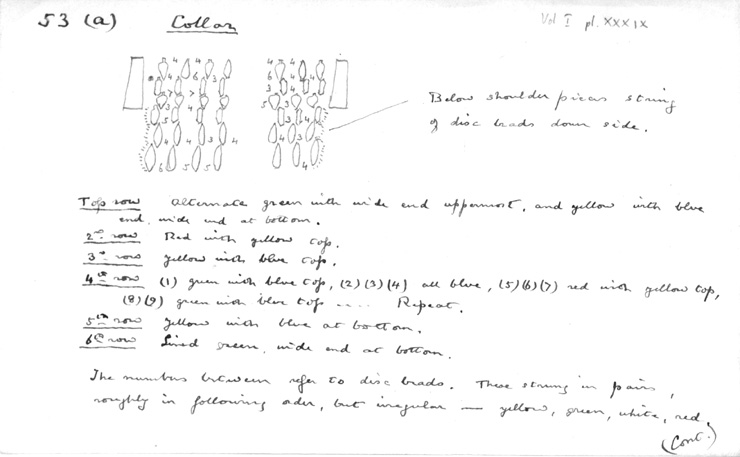 53 (a) Collar Vol I pl. XXXIX
Below shoulder pieces string
of disc beads down side.
Top row Alternate green with wide end uppermost, and yellow with blue
end, wide end at bottom.
2nd row Red with yellow top.
3rd row yellow with blue top.
4th row (1) green with blue top, (2)(3)(4) all blue, (5)(6)(7) red with yellow top,
(8)(9) green with blue top .... Repeat.
5th row yellow with blue at bottom.
6th row Lined green, wide end at bottom.
The numbers between refer to disc beads. These strung in pairs,
roughly in following order, but irregular — yellow, green, white, red.
(Cont.)